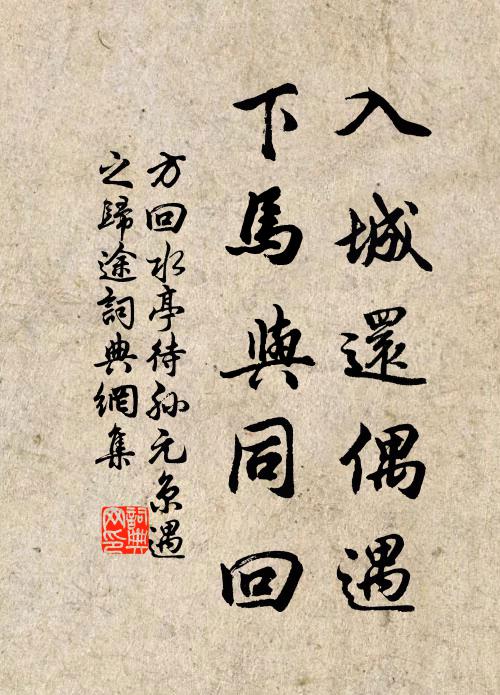 入城還偶遇
下馬與同回
方回水亭待孙元京遇
之歸途詞典網集
詞典网印